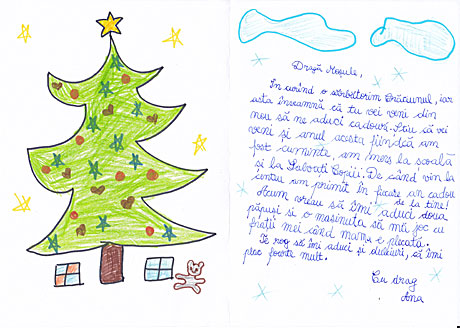 Dragă Moșule,
În curînd o sărbătorim Crăciunul, iar
asta înseamnă că tu vei veni din
nou să ne aduci cadouri. Știu că vei
veni și anul acesta fiindcă am
fost cuminte, am mers la școală
și la Salvați Copiii. De când vin la
centru am primit în fiecare an cadou
de la tine!
Acum vreau să îmi aduci doua
păpuși și o masinuta să mă joc cu
frații mei când mama e plecată.
Te rog să îmi aduci și dulciuri, că îmi
plac foarte mult.
Cu drag
Ana